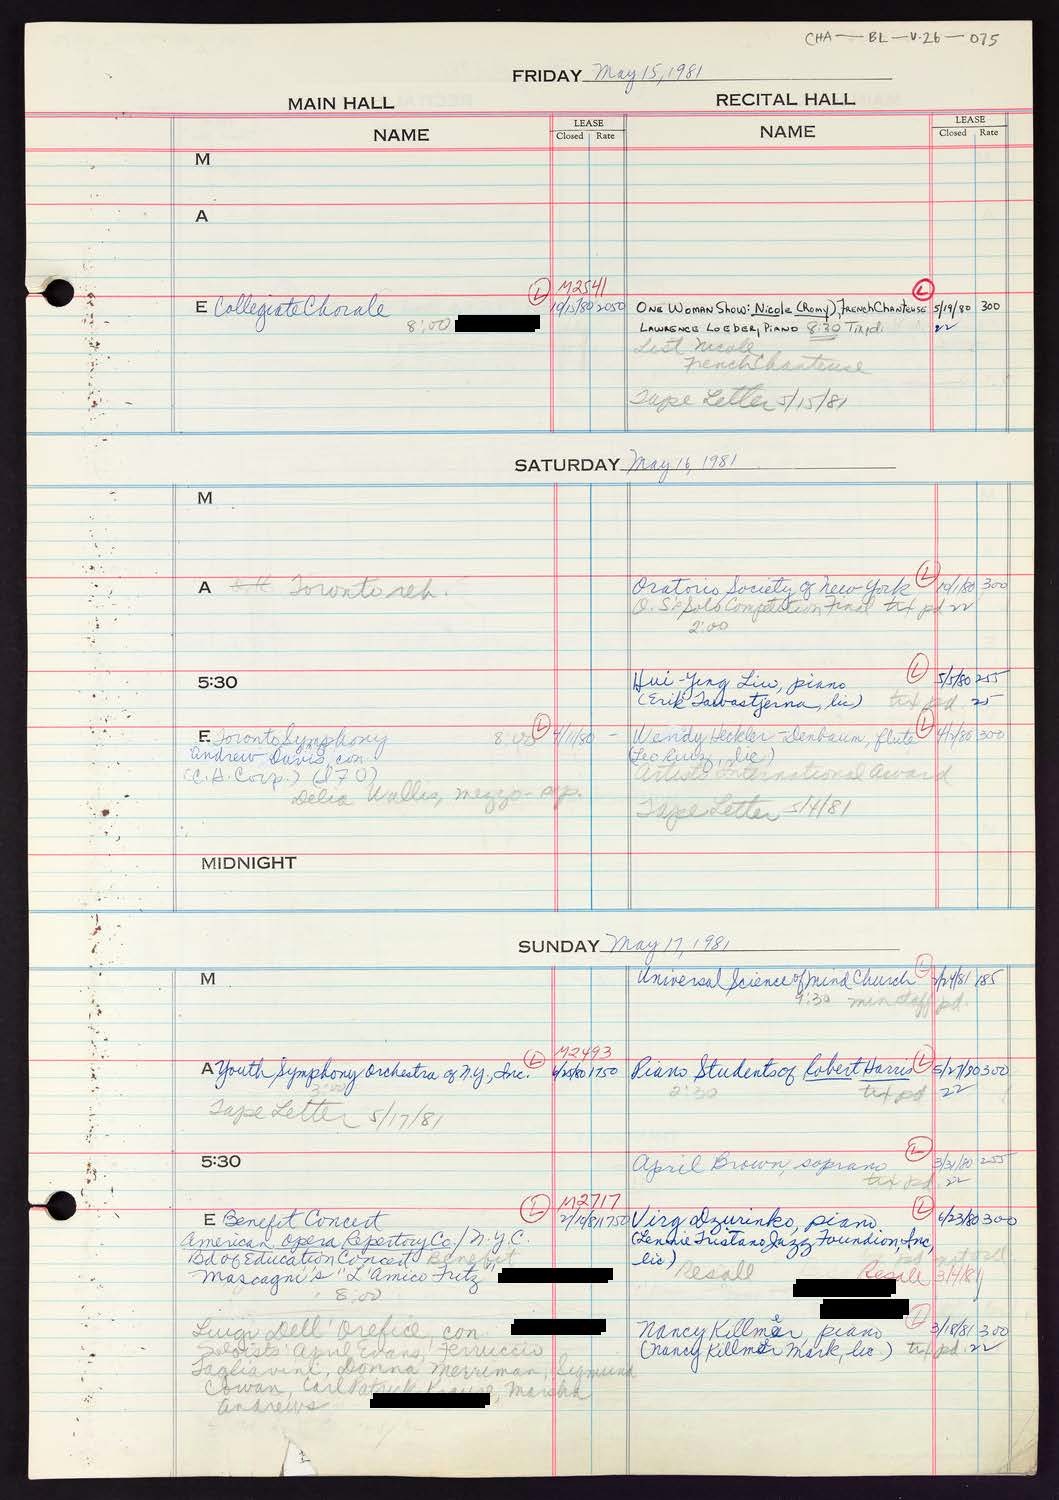 CHA — BL — V.26 — 075
FRIDAY May 15, 1981
MAIN HALL
RECITAL HALL
NAME
LEASE
Closed Rate
NAME
LEASE
Closed Rate
M
A
M2541
E Collegiate Chorale L 10/15/80 2050
8:00
L
ONE WOMAN SHOW: Nicole (Romy), FRENCH CHANTEUSE 5/19/80 300
LAWRENCE LOEBER, PIANO 8:30 Tix pd. 22
List Nicole
French Chanteuse
Tape Letter 5/15/81
SATURDAY May 16, 1981
M
A Toronto reh.
Oratorio Society of New York L 10/1/80 300
O.S. Solo Competition Final tix pd 22
2:00
5:30
Hui-Ying Liu, piano L 5/5/80 255
(Erik Tawastjerna, lic) tix pd. 25
E Toronto Symphony 8:00 L 4/1/80 –
Andrew Davis, con.
(C.H. Corp.) (I70)
Delia Wallis, mezzo-sop.
Wendy Heckler-Denbaum, flute L 4/1/80 300
(Leo Ruiz, lic)
Artists International Award
Tape Letter 5/4/81
MIDNIGHT
SUNDAY May 17, 1981
M
Universal Science of Mind Church L 2/24/81 185
9:30 min staff pd.
M2493
A Youth Symphony Orchestra of N.Y., Inc. L 6/25/80 1750
3:00
Tape Letter 5/17/81
Piano Students of Robert Harris L 5/27/80 300
2:30 tix pd 22
5:30
April Brown, soprano L 3/31/80 255
tix pd. 22
M2717
E Benefit Concert L 2/19/81 1750
American Opera Repertory Co./N.Y.C.
Bd of Education Concert Benefit
Mascagni's "L'Amico Fritz"
8:00
Luigi Dell'Orefice, con
Soloists: April Evans, Ferruccio
Tagliavini, Donna Merriman, Sigmund
Cowan, Carl Patrick Krause, Marsha
Andrews
Virg Dzurinko, piano L 6/23/80 300
(Lennie Tristano Jazz Foundion, Inc,
lic) Resale
Resale 3/4/81
Nancy Killmer, piano L 3/18/81 300
(Nancy Killmer Mark, lic) tix pd. 22